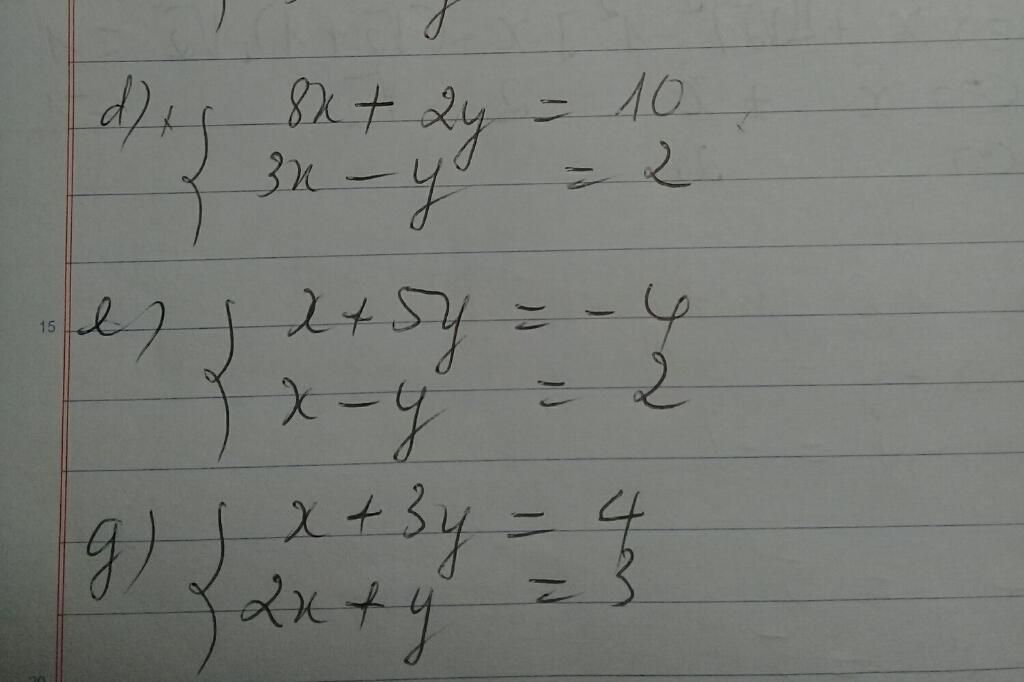 y
d) { 8x + 2y = 10
3x - y = 2
15 e) { x + 5y = -4
x - y = 2
g) { x + 3y = 4
2x + y = 3